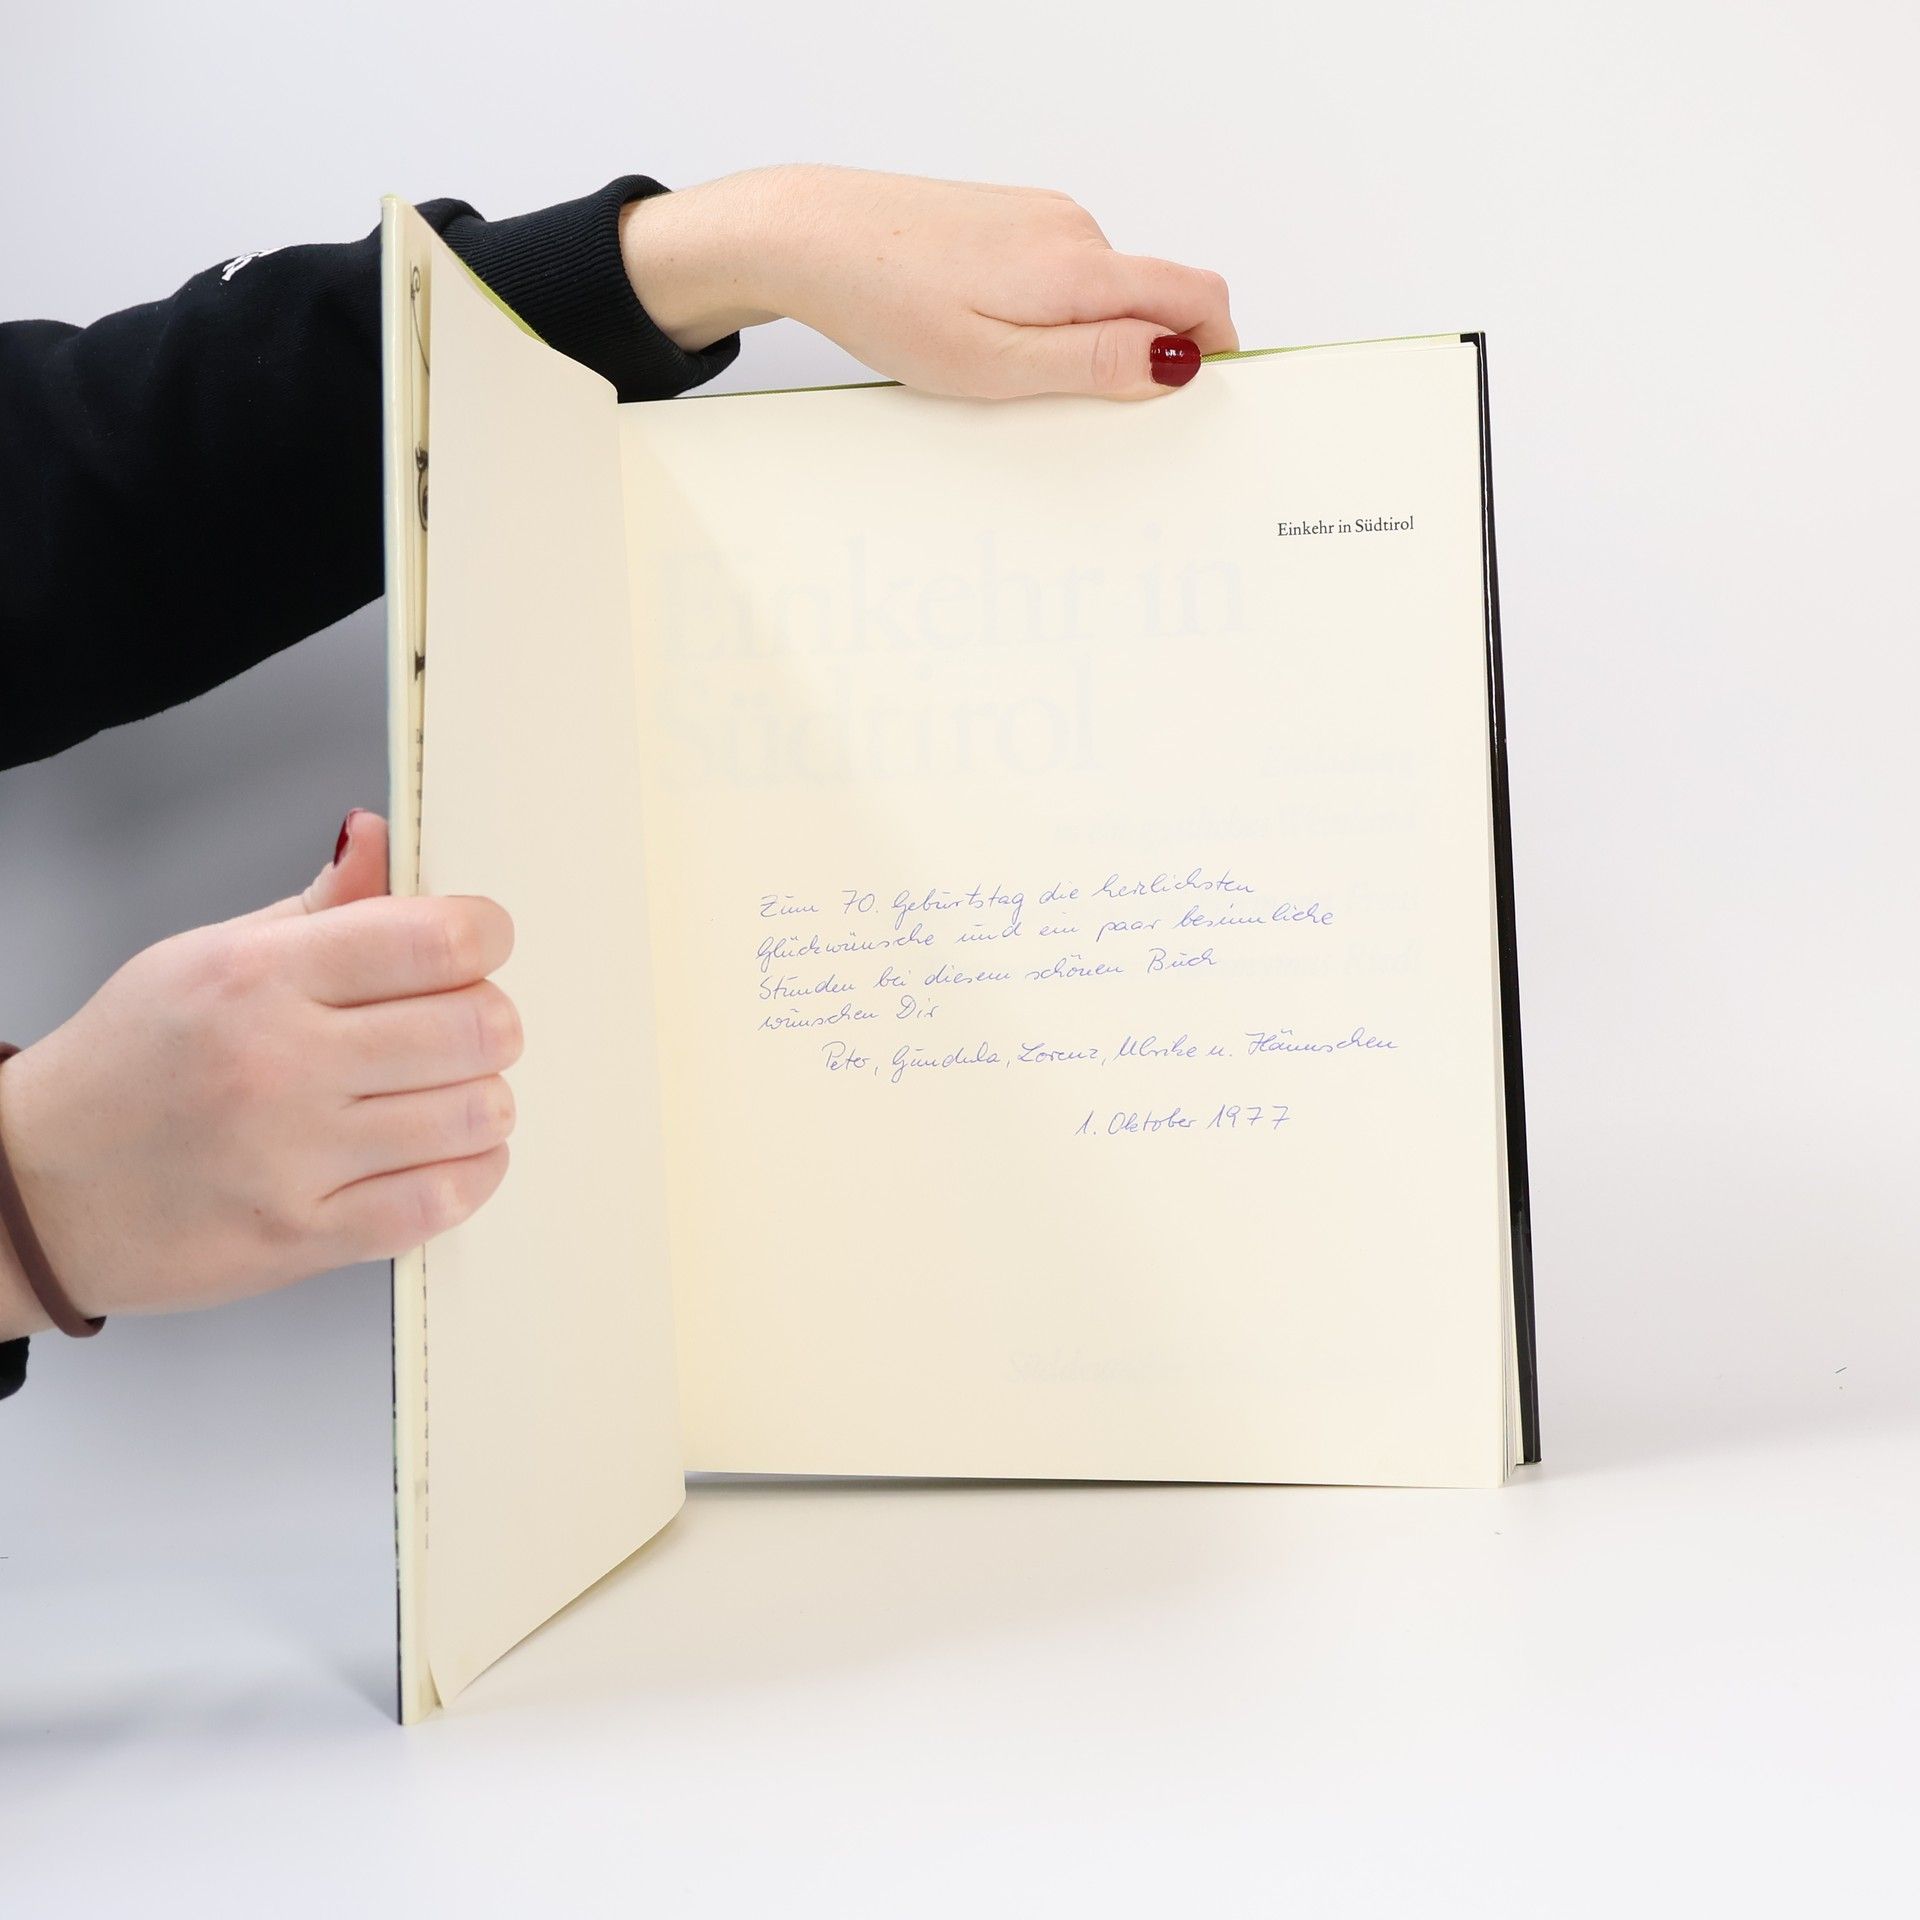 Einkehr in Südtirol
Einkehr in
Südtirol
Zum 70. Geburtstag die herzlichsten
Glückwünsche und ein paar besinnliche
Stunden bei diesem schönen Buch
wünschen Dir
Peter, Gundula, Lorenz, Ulrike u. Hännschen
1. Oktober 1977